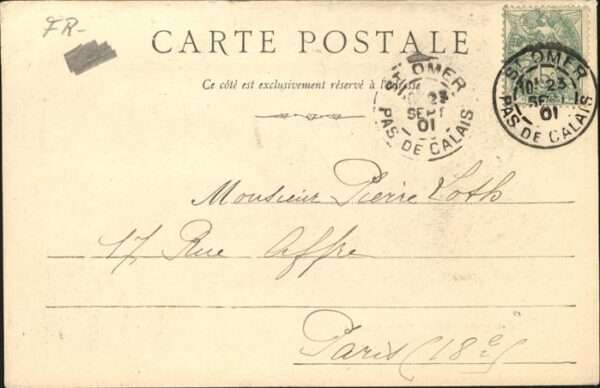 FR-
CARTE POSTALE
Ce côté est exclusivement réservé à l'adresse
ST OMER
23
SEPT
01
PAS DE CALAIS
ST OMER
23
SEPT
01
PAS DE CALAIS
Monsieur Pierre Loth
17, Rue Affre
Paris (18e)